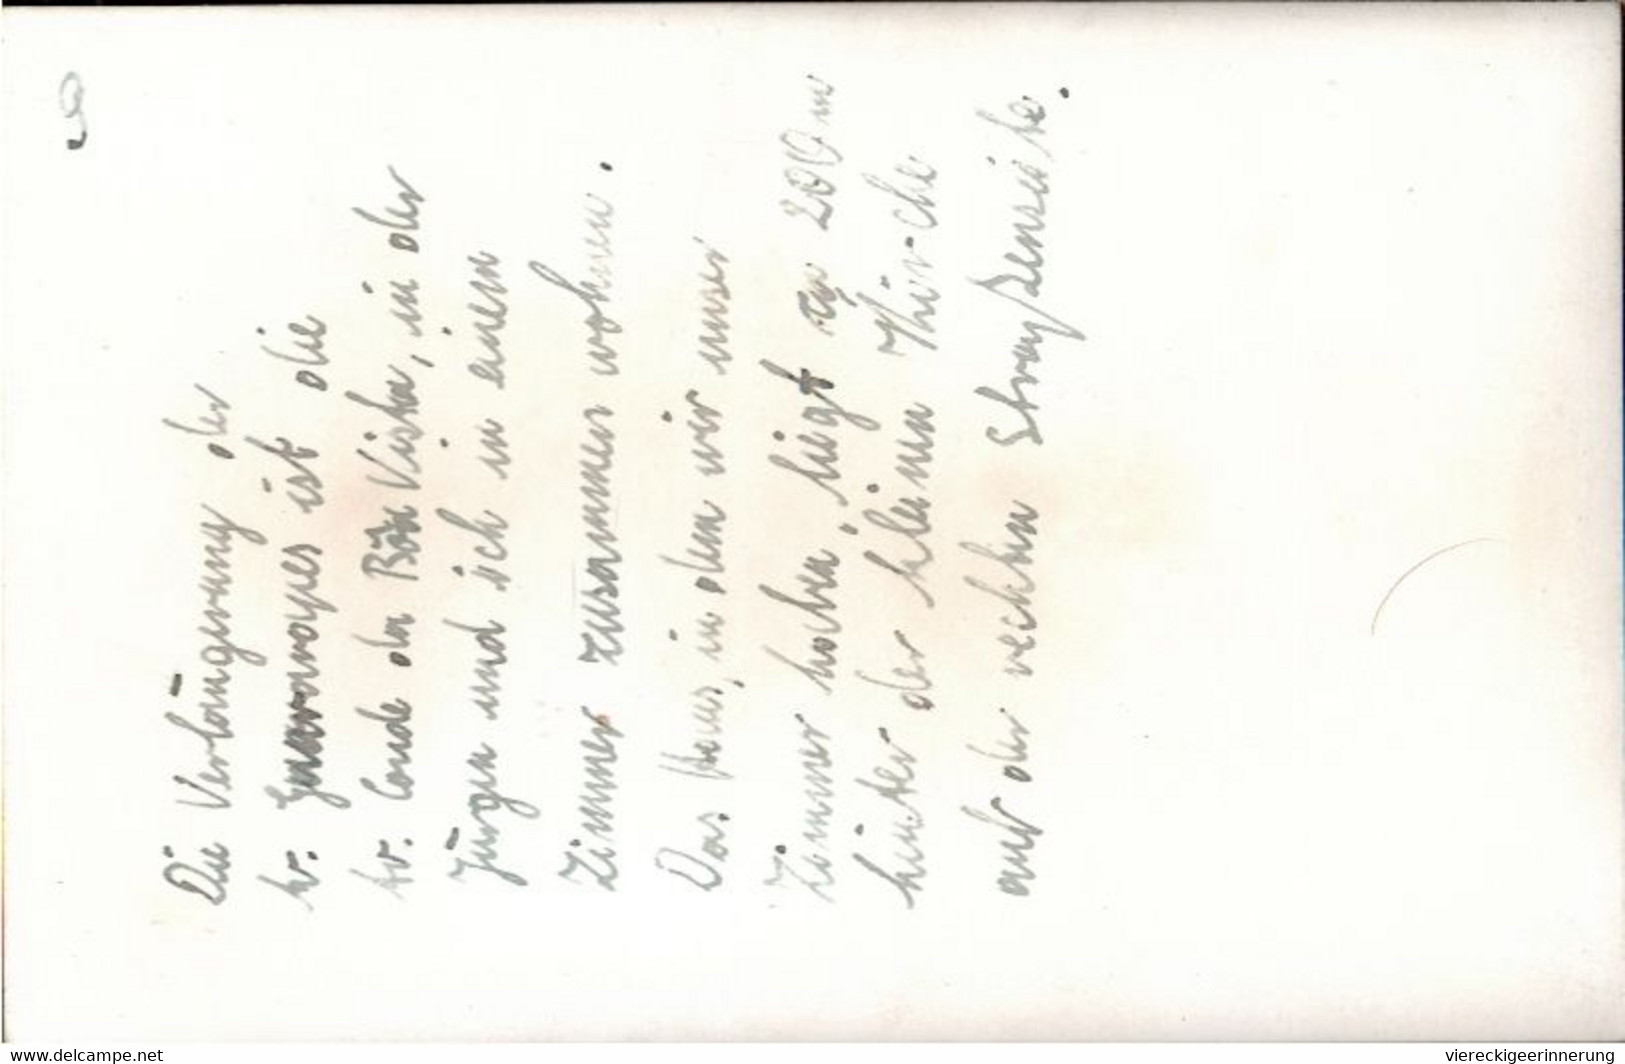 Die Verlängerung der
Av. Guararapes ist die
Av. Conde da Bôa Vista, in der
Jürgen und ich in einem
Zimmer zusammen wohnen.
Das Haus, in dem wir unser
Zimmer haben, liegt 200 m
hinter der kleinen Kirche
auf der rechten Straßenseite.
www.delcampe.net
viereckigeerinnerung